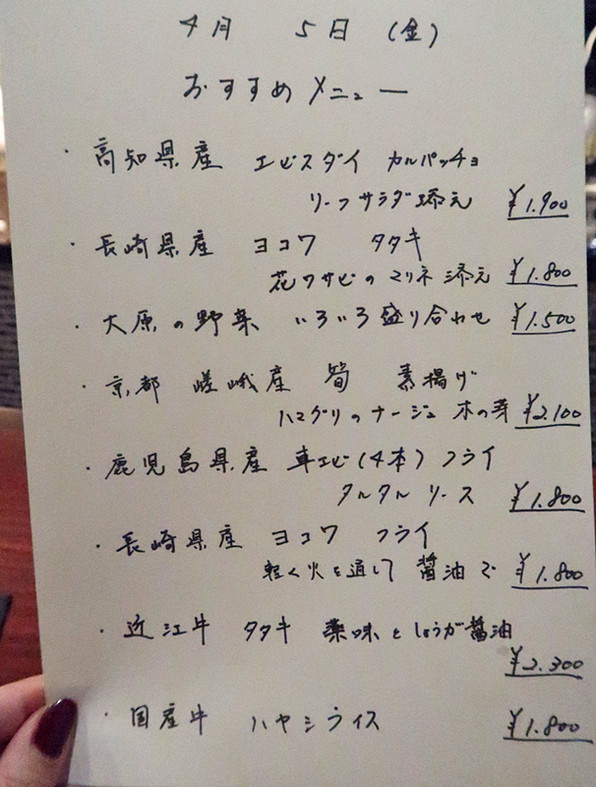 4月 5日 (金)
おすすめメニュー
・高知県産 エビスダイ カルパッチョ
リーフサラダ添え ¥1.900
・長崎県産 ヨコワ タタキ
花ワサビのマリネ添え ¥1.800
・大原の野菜 いろいろ盛り合わせ ¥1.500
・京都 嵯峨産 筍 素揚げ
ハマグリのナージュ 木の芽 ¥2.100
・鹿児島県産 車エビ(4本) フライ
タルタルソース ¥1.800
・長崎県産 ヨコワ フライ
軽く火を通して 醤油で ¥1.800
・近江牛 タタキ 薬味としょうが醤油
¥2.300
・国産牛 ハヤシライス ¥1.800